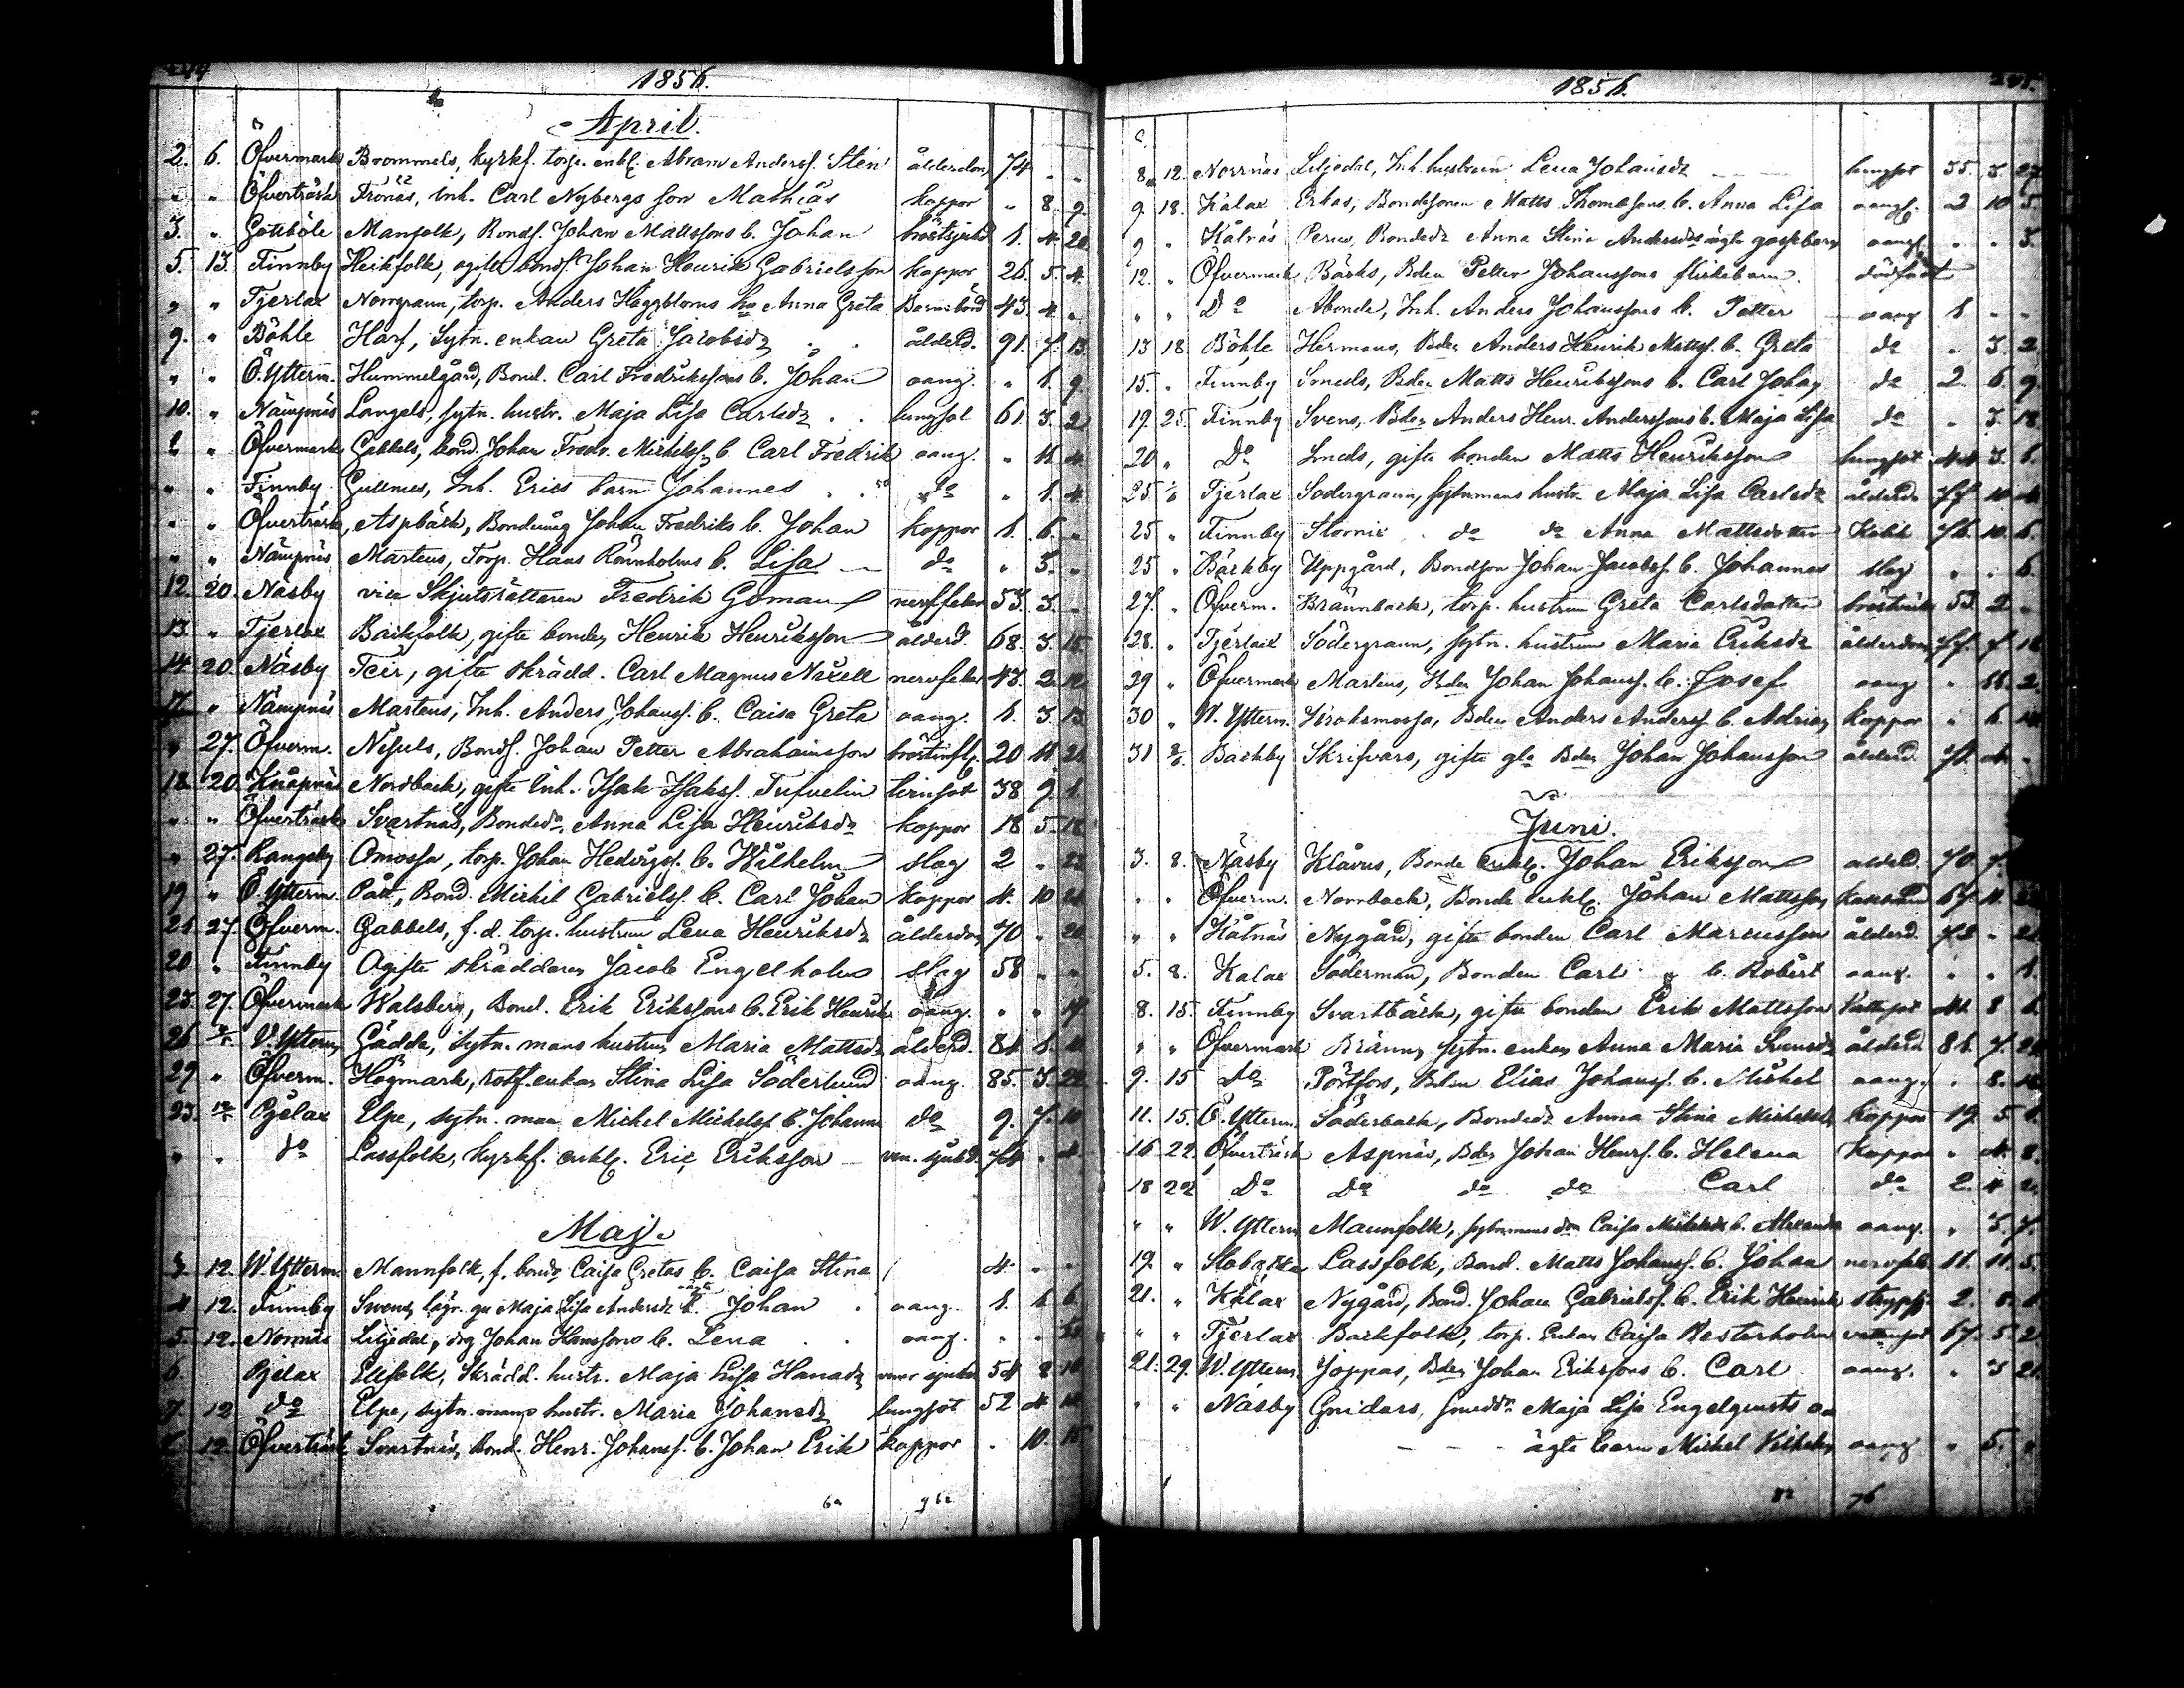 244
1856.
April.
2. 6. Öfvermark Brommels, kyrkf. torp. enkl. Abram Anderss. Sten ålderdom 74 . .
" " Öfverträsk Tronäs, Inh. Carl Nybergs son Mathias koppor " 8. 9.
3. " Gottböle Manfolk, Bondf. Johan Mattssons b. Johan bröstsjukd 1. 4. 20
5. 13. Finnby Heikfolk, ogift bonds. Johan Henrik Gabrielsson koppor 26. 5. 4.
" " Tjerlax Norrgrann, torp. Anders Häggbloms ha Anna Greta Barnsbörd 43. 4. "
9. " Böhle Harf, Sytn. enkan Greta Jacobsdr ålderd. 91. 7. 13.
" " Ö. Ytterm. Hummelgård, Bond. Carl Fredrikssons b. Johan oang. " 1. 9.
10. " Nämpnäs Langels, sytn. hustr. Maja Lisa Carlsdr lungsot 61. 3. 2
" " Öfvermark Gabbels, bond. Johan Fredr. Mickelss. b. Carl Fredrik oang. " 11. 4.
" " Finnby Gullmes, Inh. Erics barn Johannes do " 1. 4.
" " Öfverträsk, Aspbäck, Bondemåg Johan Fredriks b. Johan koppor 1. 6. "
" " Nämpnäs Martens, Torp. Hans Rönnholms b. Lisa do " 3. "
12. 20. Näsby vice Skjutsrättaren Fredrik Goman nervfeber 53. 3. "
13. " Tjerlax Backfolk, gifte bonden Henrik Henriksson ålderd. 68. 3. 15.
14 20. Näsby Teir, gifte skrädd. Carl Magnus Nixell nervfeber 43. 2. 12.
17. " Nämpnäs Martens, Inh. Anders Johanss. b. Caisa Greta oang. 1. 3. 13.
" 27. Öfverm. Nisuls, Bonds. Johan Petter Abrahamsson bröstinfl. 20 11. 21
18. 20. Knåpnäs Nordback, gifte Inh. Isak Isakss. Tufvelin 38 9. 1.
" " Öfverträsk Svartnäs, Bondedr Anna Lisa Henriksdr koppor 18 5. 18.
" 27. Rangsby Omossa, torp. Johan Hedbergs. b. Wilhelm slag 2 " 23
19 " Ö. Ytterm. Pått, Bond. Mickel Gabrielss. b. Carl Johan koppor 4. 10
21 27. Öfverm. Gabbels, f. d. torp. hustrun Lena Henriksdr ålderdom 70 " 20
20 " Finnby Ogifte skräddaren Jacob Engelholm slag 58 " "
23. 27. Öfvermark Walsberg, Bond. Erik Erikssons b. Erik Henrik oang. " " 14.
26 V. Ytterm. Gädda, Sytn. mans hustru Maria Mattsdr ålderd. 81 8.
29 " Öfverm. Högmark, rotf. enkan Stina Lisa Söderlund oang. 85. 3.
23. Pjelax Elpe, sytn. man Michel Michelss. b. Johanna do 9. 7. 10
" " do Lassfolk, kyrkf. enkl. Eric Eriksson ven. sjukd. " 4.
Maj.
3. 12. W. Ytterm. Mannfolk, f. bondr Caisa Gretas b. Caisa Stina 4. " "
4 12. Finnby Svens, lägr. gu Maja Lisa Andersdr b. Johan oang. 1. 6.
5. 12. Norrnäs Liljedal, drg Johan Hanssons b. Lena oang. " "
6. Pjelax Ellfolk, Skrädd. hustr. Maja Lisa Hansdr vener sjukd 54 8
7. 12 do Elpe, sytn. mans hustr. Maria Johansdr lungsot 52 4
" 12. Öfverträsk Svartnäs, Bond. Henr. Johanss. b. Johan Erik koppor . 10. 15
1856.
8. 12. Norrnäs Liljedal, Inh. hustrun Lena Johansdr lungsot 55. 3. 27
9. 18. Kalax Erkas, Bondesonen Matts Thomassons b. Anna Lisa oang. 2 10 5.
9 " Kålnäs Perus, Bondedr Anna Stina Andersdrs oägta gossebarn oang. " " 3.
12. " Öfvermark Bärks, Bden Petter Johanssons flickebarn dödfödt
" " Do Abonde, Inh. Anders Johanssons b. Petter oang 1 " "
13 18. Böhle Hermans, Bden Anders Henrik Mattss. b. Greta do " 3. 2
15. " Finnby Smeds, Bden Matts Henrikssons b. Carl Johan do 2. 6. 9.
19. 25. Finnby Svens, Bden Anders Henr. Anderssons b. Maja Lisa do " 3. 18.
20 " Do Smeds, gifte bonden Matts Henriksson lungsot 44 3. 6.
25 Tjerlax Södergrann, sytnmans hustr. Maja Lisa Carlsdr ålderd. 77 10 4.
25 " Finnby Stornix do do Anna Mattsdotter 76. 10. 6.
25 " Bäckby Uppgård, Bondson Johan Jacobss. b. Johannes slag " " 6.
27. " Öfverm. Brännback, torp. hustrun Greta Carlsdotter 53. 2 "
28. " Tjerlax Södergrann, sytn. hustrun Maria Eriksdr ålderdom 77. 7
29 " Öfvermark Martens, Bden Johan Johanss. b. Josef oang " 11. 2.
30 " W. Ytterm. Bden Anders Anderss. b. Adrian koppor
31 Backby Skrifvars, gifte gle Bden Johan Johansson ålderd. 4. "
Juni.
3. 8. Näsby Klavus, Bonde enkl. Johan Eriksson ålderd. 70. 7.
" " Öfverm. Norrback, Bonde enkl. Johan Mattsson 67. 11.
" " Kåtnäs Nygård, gifte bonden Carl Marcusson ålderd. 73 "
5. 8. Kalax Söderman, Bonden Carl b. Robert oang. " " 1.
8. 15. Finnby Svartbäck, gifte bonden Erik Mattsson 8
" " Öfvermark Bränns sytn. enkan Anna Maria Svensdr ålderd. 81. 7.
9. 15 do Pörtfors, Bden Elias Johanss. b. Mickel oang. " 8.
11. 15. Ö. Ytterm. Söderback, Bondedr Anna Stina Mickelsdr koppor 19. 5
16 22. Öfverträsk Aspnäs, Bden Johan Henrs. b. Helena koppor " 4. 8.
18 22 Do Do do do Carl do 2. 4
" " W. Ytterm. Mannfolk, sytnmans dr Caisa Mickelsdr b. Alexander oang. " 3. 7.
19. " Lassfolk, Bond. Matts Johanss. b. Johan nervfeb 11. 11. 5.
21. " Kalax Nygård, Bond. Johan Gabrielss. b. Erik Henrik strypsj. 2.
" " Tjerlax Backfolk, torp. Enkan Caisa Westerholm vattusot 67. 5. 2
21. 29. W. Ytterm. Joppas, Bden Johan Erikssons b. Carl oang. " 3 21
" " Näsby Gnidars, smeddr Maja Lisa Engelqvists oä
ägta barn Mickel Vilhelm oang " 5.